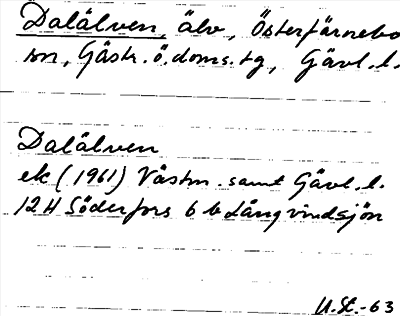 Dalälven, älv, Österfärnebo
sn, Gästr. ö. doms. tg, Gävl. l.
Dalälven
ek (1961) Västm. samt Gävl. l.
12H Söderfors 6 b Långvindsjön
U.St.-63